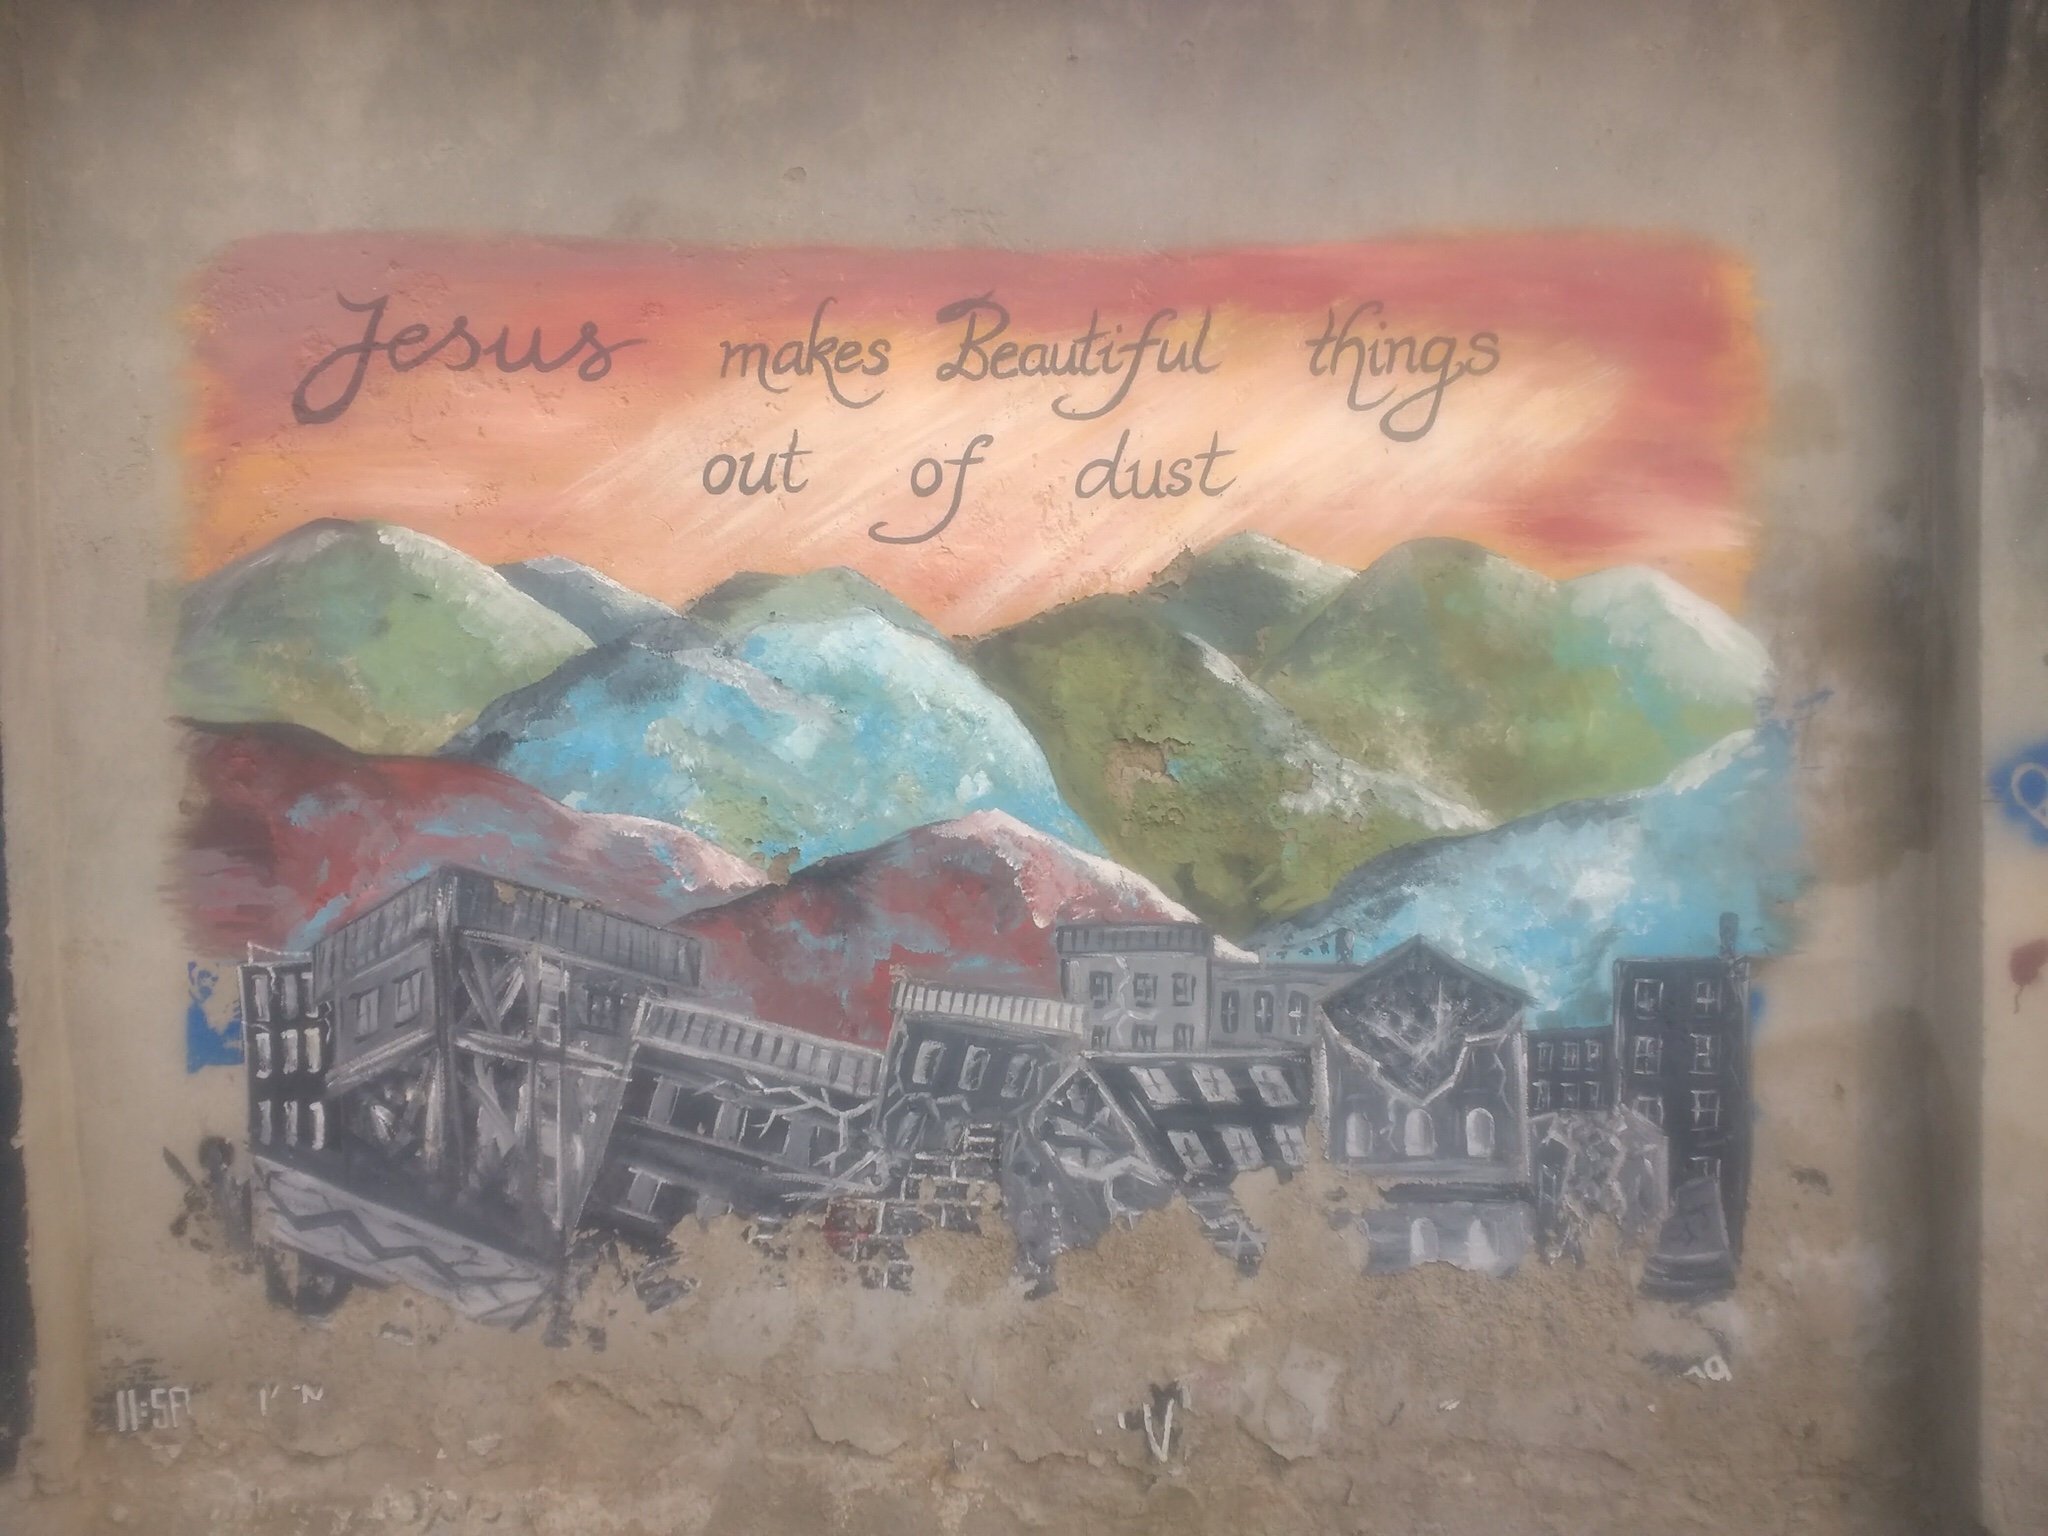 Jesus makes Beautiful things
out of dust